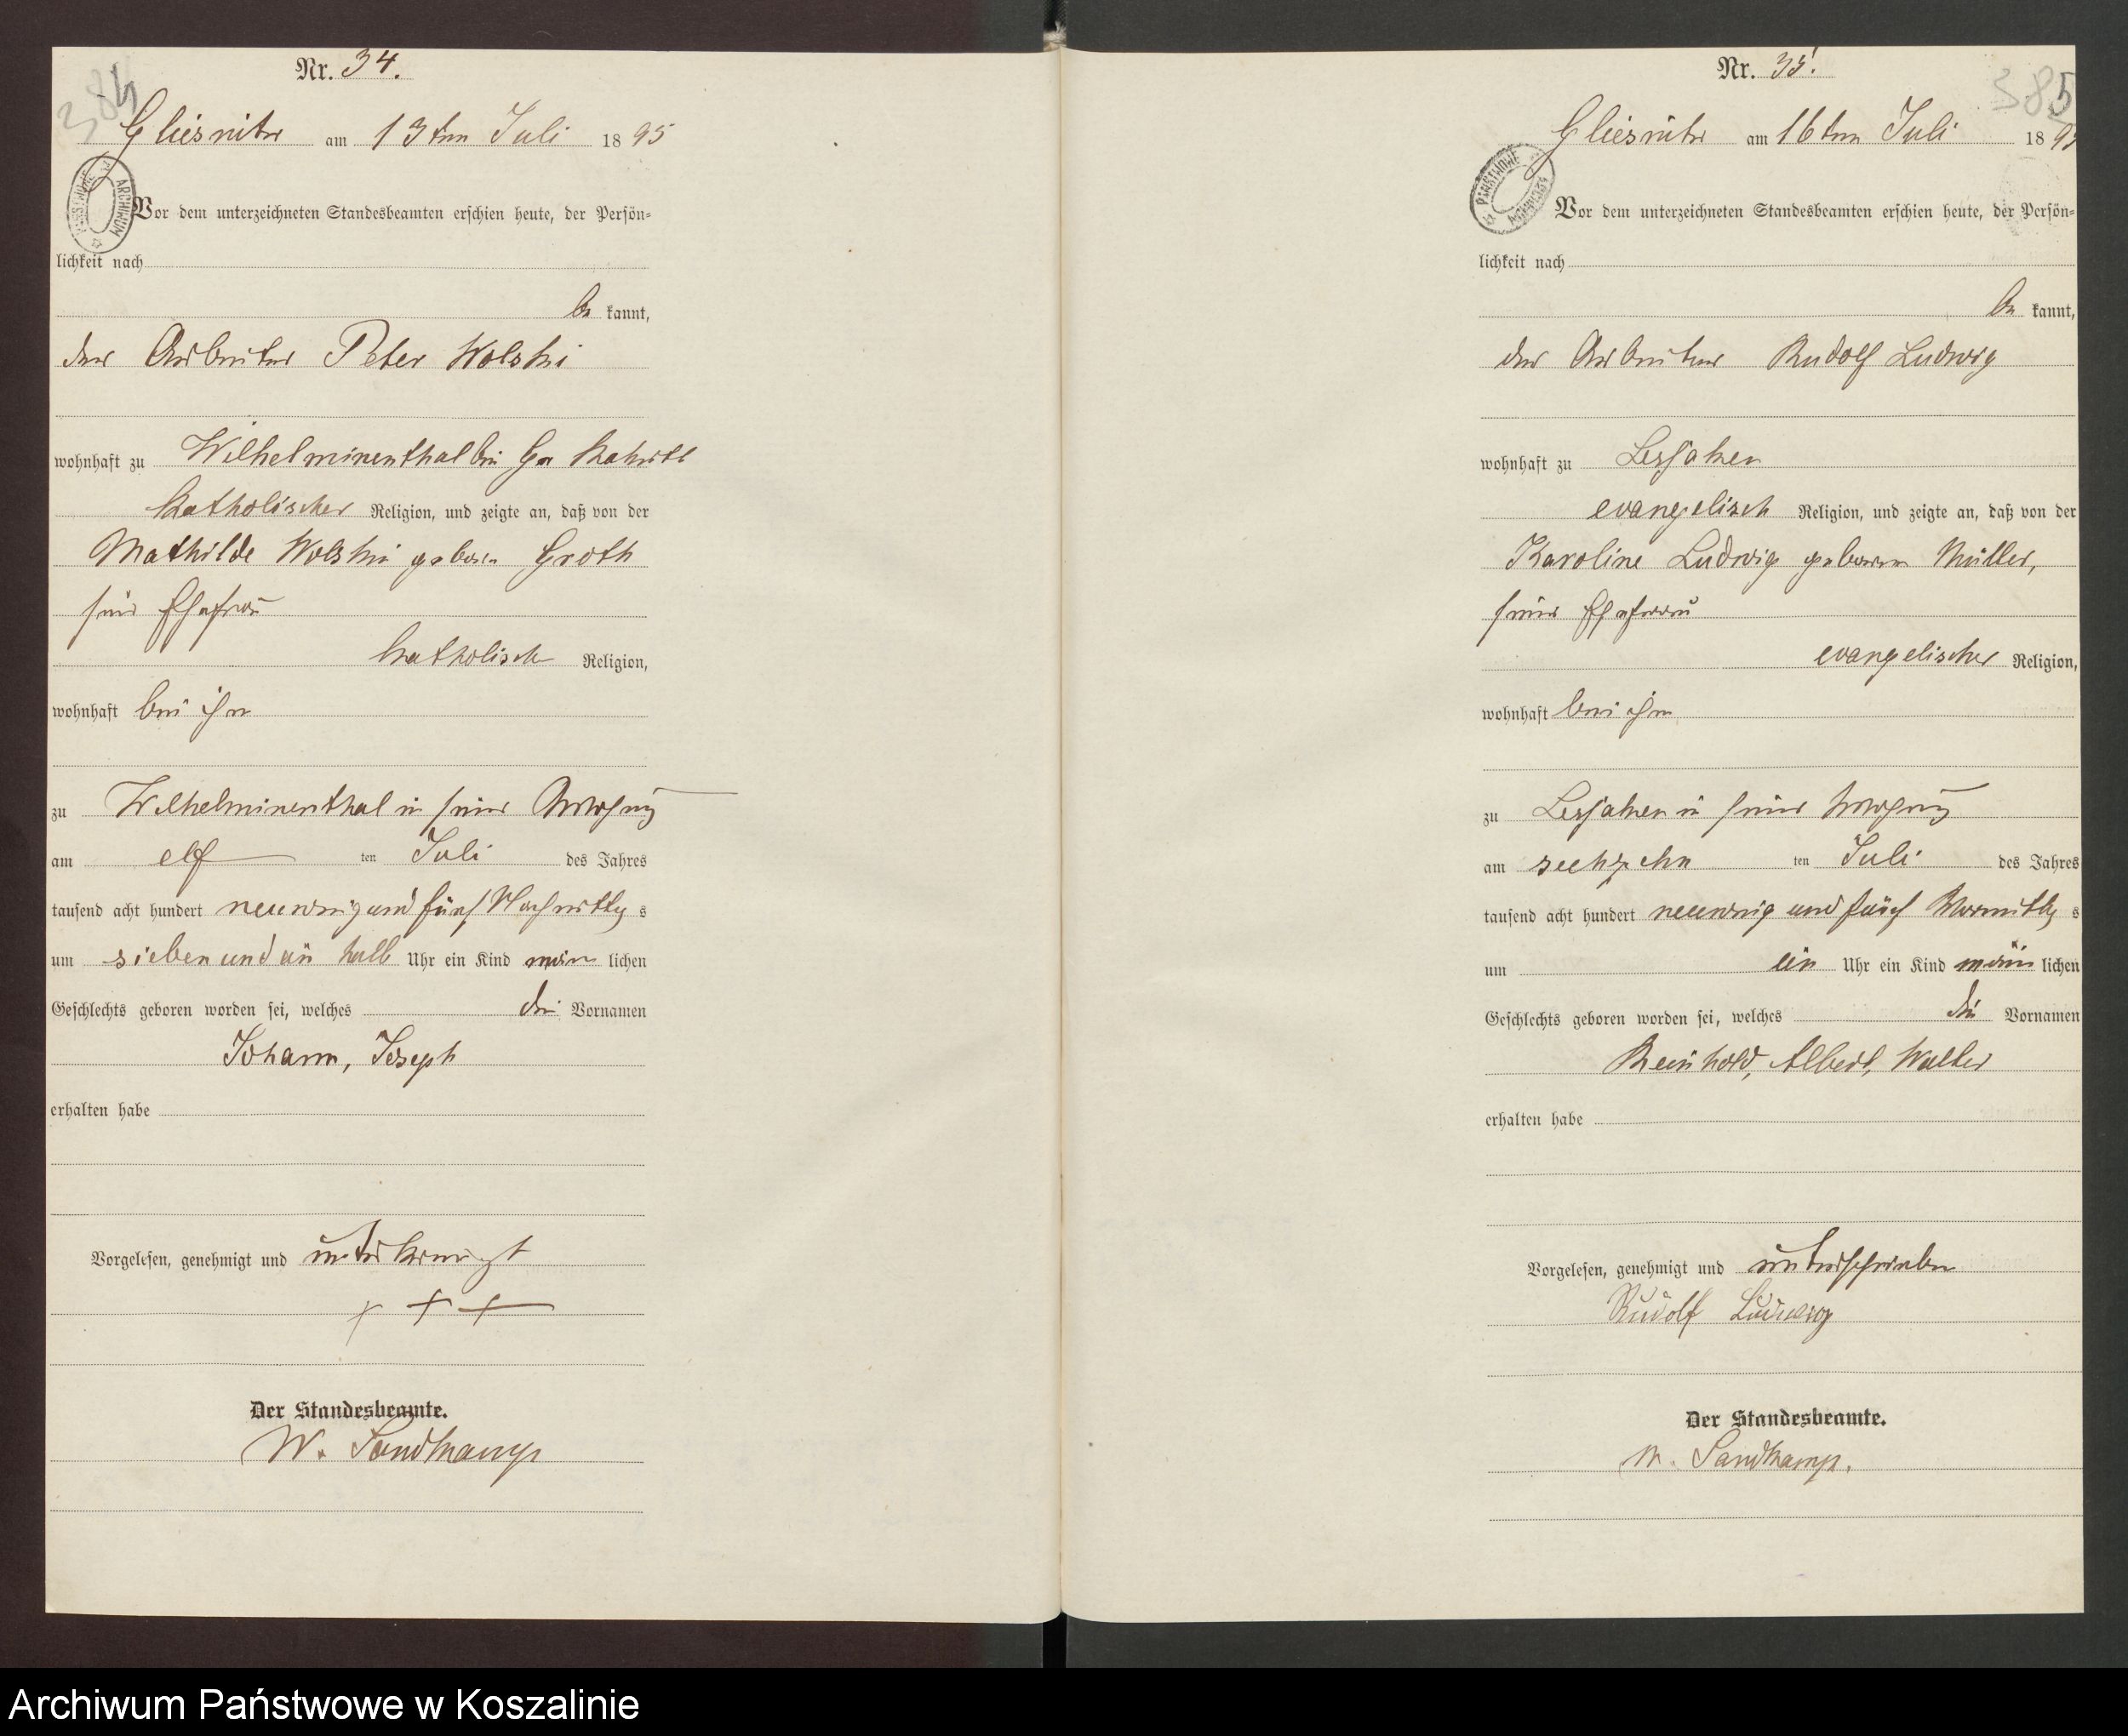 384
Nr. 34.
Gliesnitz am 13ten Juli 1895
Vor dem unterzeichneten Standesbeamten erschien heute, der Persön-
lichkeit nach
be kannt,
der Arbeiter Peter Wolski
wohnhaft zu Wilhelminenthal bei Gr
katholischer Religion, und zeigte an, daß von der
Mathilde Wolski geboren Groth
seine Ehefrau
katholisch Religion,
wohnhaft bei ihm
zu Wilhelminenthal in seiner Wohnung
am elf ten Juli des Jahres
tausend acht hundert neunzig und fünf Nachmittag s
um sieben und ein halb Uhr ein Kind männ lichen
Geschlechts geboren worden sei, welches die Vornamen
Johann, Joseph
erhalten habe
Vorgelesen, genehmigt und unterkreuzt
+ + +
Der Standesbeamte.
W. Sandkamp
ARCHIWUM PAŃSTWOWE
385
Nr. 35.
Gliesnitz am 16ten Juli 1895
Vor dem unterzeichneten Standesbeamten erschien heute, der Persön-
lichkeit nach
be kannt,
der Arbeiter Rudolf Ludwig
wohnhaft zu Lessaken
evangelisch Religion, und zeigte an, daß von der
Karoline Ludwig geboren Müller,
seine Ehefrau
evangelischer Religion,
wohnhaft bei ihm
zu Lessaken in seiner Wohnung
am sechzehn ten Juli des Jahres
tausend acht hundert neunzig und fünf Vormittag s
um ein Uhr ein Kind männ lichen
Geschlechts geboren worden sei, welches die Vornamen
Reinhold, Albert, Walter
erhalten habe
Vorgelesen, genehmigt und unterschrieben
Rudolf Ludwig
Der Standesbeamte.
W. Sandkamp.
ARCHIWUM PAŃSTWOWE
Archiwum Państwowe w Koszalinie